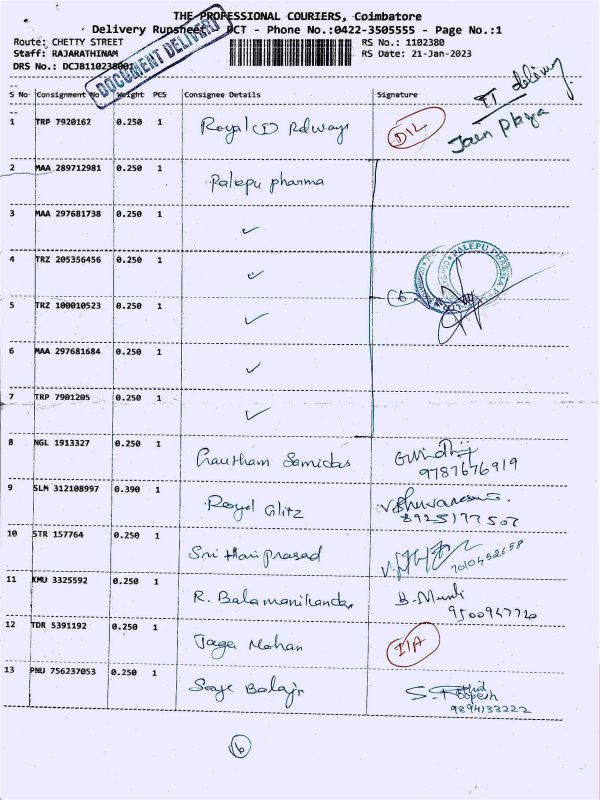 THE PROFESSIONAL COURIERS, Coimbatore
Delivery Runsheet PCT - Phone No.:0422-3505555 - Page No.:1
Route: CHETTY STREET RS No.: 1102380
Staff: RAJARATHINAM RS Date: 21-Jan-2023
DRS No.: DCJB110238001
DOCUMENT DELIVERY
S No Consignment No Weight PCS Consignee Details Signature
delivery
Jaen Plaza
1 TRP 7920162 0.250 1 Royal Railways D/L
2 MAA 289712981 0.250 1 Palepu pharma
3 MAA 297681738 0.250 1 ✓
4 TRZ 205356456 0.250 1 ✓
PALEPU PHARMA
5 TRZ 100010523 0.250 1 ✓ (6)
6 MAA 297681684 0.250 1 ✓
7 TRP 7901205 0.250 1 ✓
8 NGL 1913327 0.250 1 Gautham Samidas
9787676919
9 SLM 312108997 0.390 1 Royal Glitz V. Bhuvaneswari.
8925197502
10 STR 157764 0.250 1 Sri Hari prasad
11 KMU 3325592 0.250 1 R. Balamanikandan
9500947720
12 TDR 5391192 0.250 1 Jaga Mohan I/A
13 PNU 756237053 0.250 1 Balaji
9894133222
6